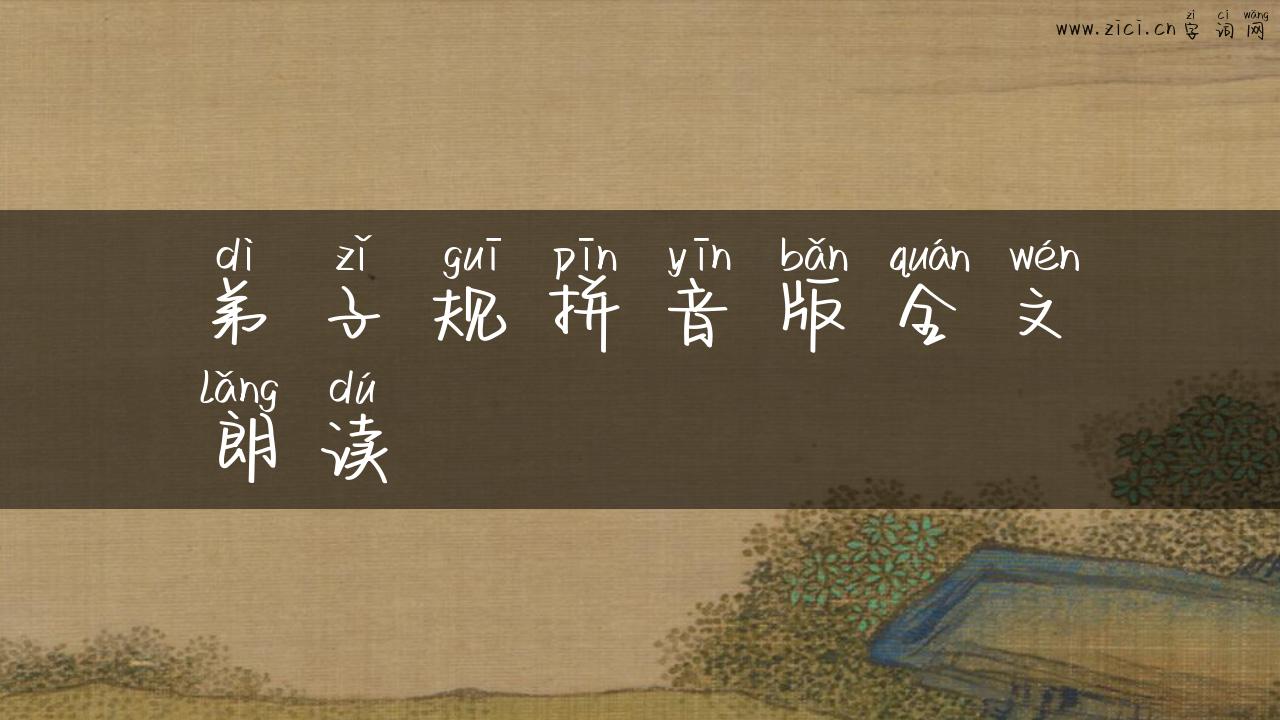 zì cí wǎng
www.zici.cn 字词网
dì zǐ guī pīn yīn bǎn quán wén
弟子规拼音版全文
lǎng dú
朗读